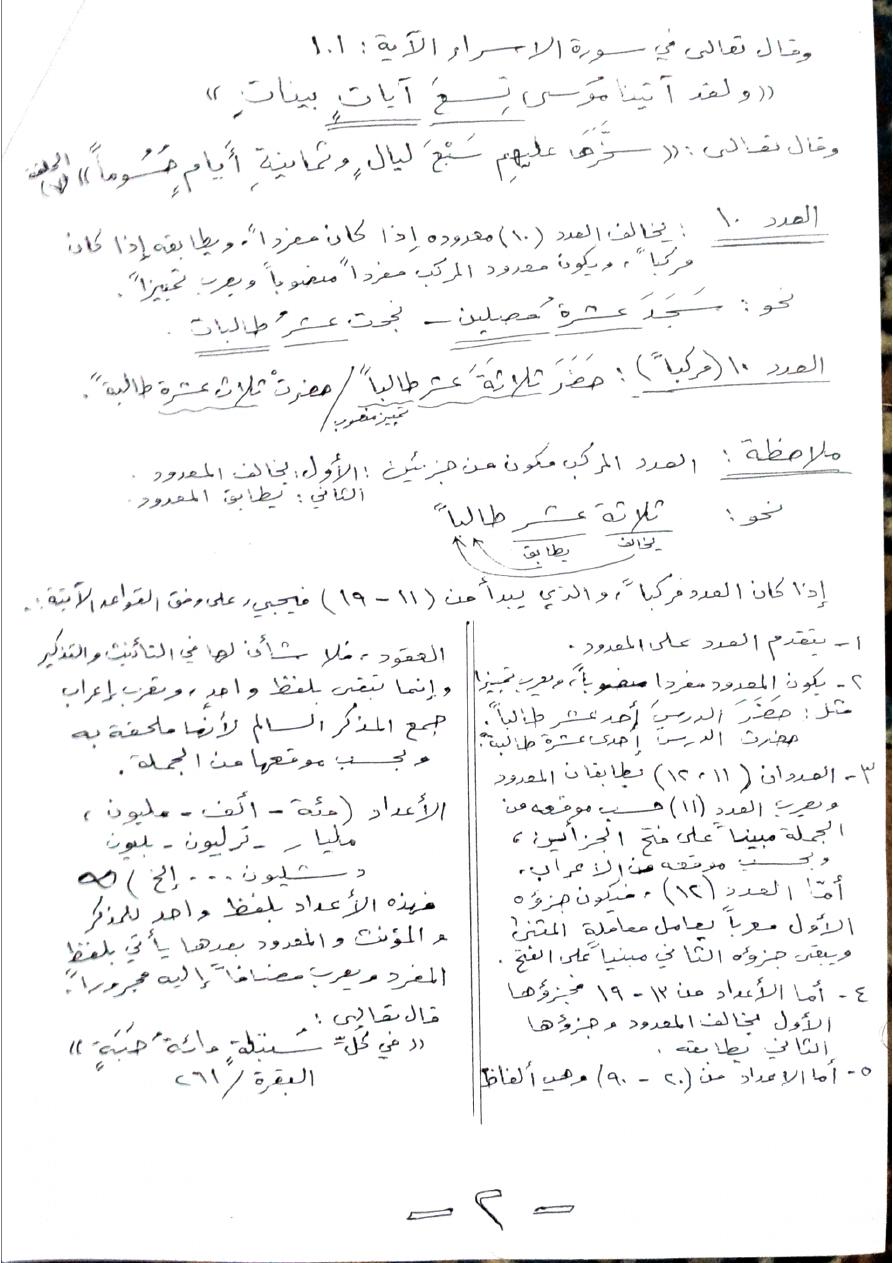 وقال تعالى في سورة الاسراء الآية : ١٠١
«ولقد آتينا مُوسى تِسعَ آياتٍ بيناتٍ»
وقال تعالى : «سخَّرَها عليهم سَبْعَ ليالٍ وثمانيةِ أيامٍ حُسُوماً» الحاقة (٧)
العدد ١٠ : يخالف العدد (١٠) معدوده إذا كان مفرداً، ويطابقه إذا كان
مركباً، ويكون معدود المركب مفرداً منصوباً ويعرب تمييزاً.
نحو : سَجَدَ عشرةُ مصلين – نجحت عشرُ طالبات .
العدد ١٠ (مركباً) : حَضَرَ ثلاثةَ عَشر طالباً / حضرتْ ثلاث عشرة طالبةً.
تمييز منصوب
ملاحظة : العدد المركب مكون من جزئين : الأول : يخالف المعدود .
الثاني : يطابق المعدود .
نحو : ثلاثة عشر طالباً
يخالف يطابق
إذا كان العدد مركباً، والذي يبدأ من (١١ – ١٩) فيجيء على وفق القواعد الآتية :.
١- يتقدم العدد على المعدود .
٢- يكون المعدود مفردا منصوباً، ويعرب تمييزا
مثل : حَضَرَ الدرسَ أحد عشر طالباً.
حضرت الدرسَ إحدى عشرة طالبةً.
٣- العددان (١١ - ١٢) يطابقان المعدود
ويعرب العدد (١١) حسب موقعه من
الجملة مبينا على فتح الجزأين ،
وبحسب موقعه من الاعراب .
أمّا العدد (١٢) ، فيكون جزؤه
الأول معرباً يعامل معاملة المثنى
ويبقى جزؤه الثاني مبنياً على الفتح .
٤- أما الأعداد من ١٣ - ١٩ فجزؤها
الأول يخالف المعدود وجزؤها
الثاني يطابقه .
٥- أما الاعداد من (٢٠ - ٩٠) وهي ألفاظ
العقود ، فلا شأن لها في التأنيث والتذكير
وإنما تبقى بلفظ واحدٍ ، وتعرب إعراب
جمع المذكر السالم لأنها ملحقة به
وبحسب موقعها من الجملة .
الأعداد (مئة - ألف - مليون ،
مليار - ترليون - بليون
دشليون ... إلخ)
فهذه الأعداد بلفظ واحد للمذكر
والمؤنث والمعدود بعدها يأتي بلفظ
المفرد ويعرب مضافاً إليه مجروراً.
قال تعالى :
«في كُلِّ سُنبلةٍ مائةُ حَبَةٍ»
البقرة / ٢٦١
- ٢ -